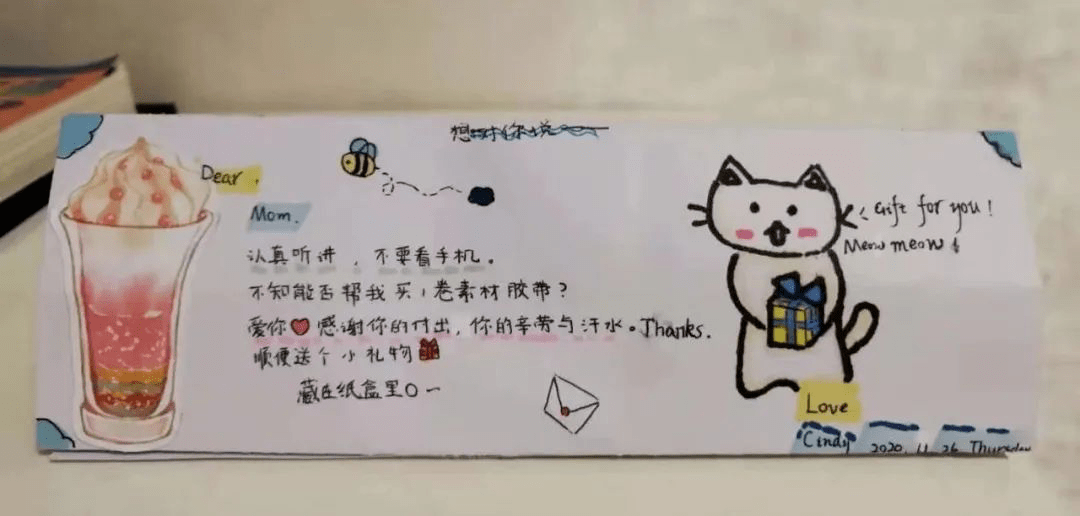 想对你说
Dear,
Mom.
认真听讲，不要看手机。
不知能否帮我买1卷素材胶带？
爱你❤感谢你的付出，你的辛劳与汗水。Thanks.
顺便送个小礼物🎁
藏在纸盒里O一
Gift for you!
Meow meow!
Love
Cindy 2020.11.26 Thursday